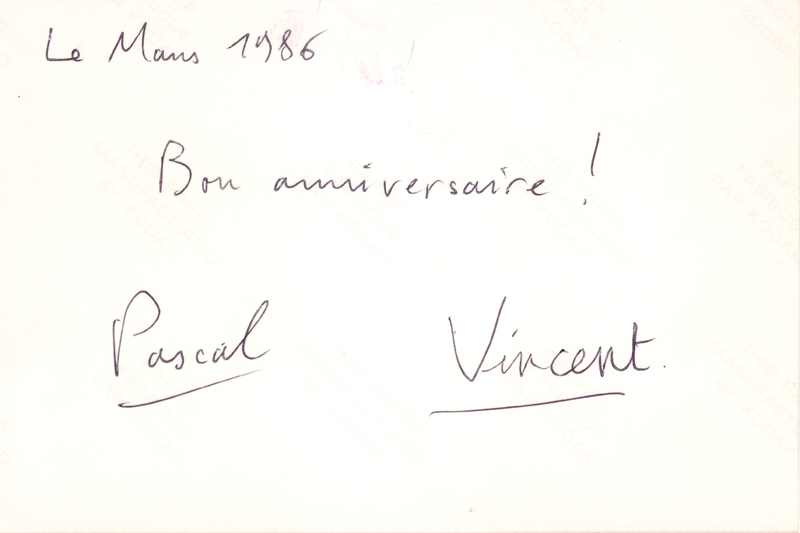 Le Mans 1986
Bon anniversaire !
Pascal Vincent.